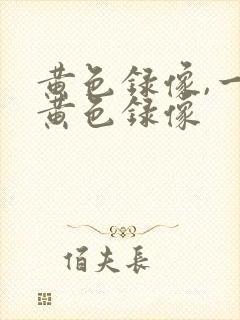 黄色録像,一
黄色録像
佰夫長